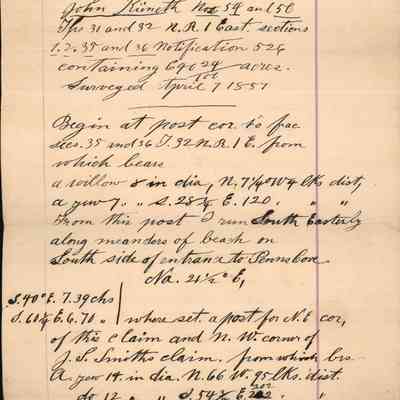 John Kineth Nos 59 and 50
Tps 31 and 32 N.R. 1 East. sections
1.2.35 and 36 Notification 526
containing 29 acres.
100
Surveyed April 7 1857
Begin at post cor. to frac
secs. 35 and 36 T. 32 N.R. 1 E. from
which bears
a willow 8 in dia, N. 7¼° W 4 lks dist,
a yew 7. " S. 28¼ E. 120. " "
From this post I run South Easterly
along meanders of beach on
South side of entrance to Penns Cove
Va. 21½° E,
S. 40° E. 7.39 chs
S. 60¼ E. 6.70 " where set a post for N.E cor,
of this claim and N.W. corner of
J. S. Smiths claim. from which brs
A. yew 14. in dia. N. 66 W. 95 lks. dist.
do 12 " " S. 54½ E. 202 "